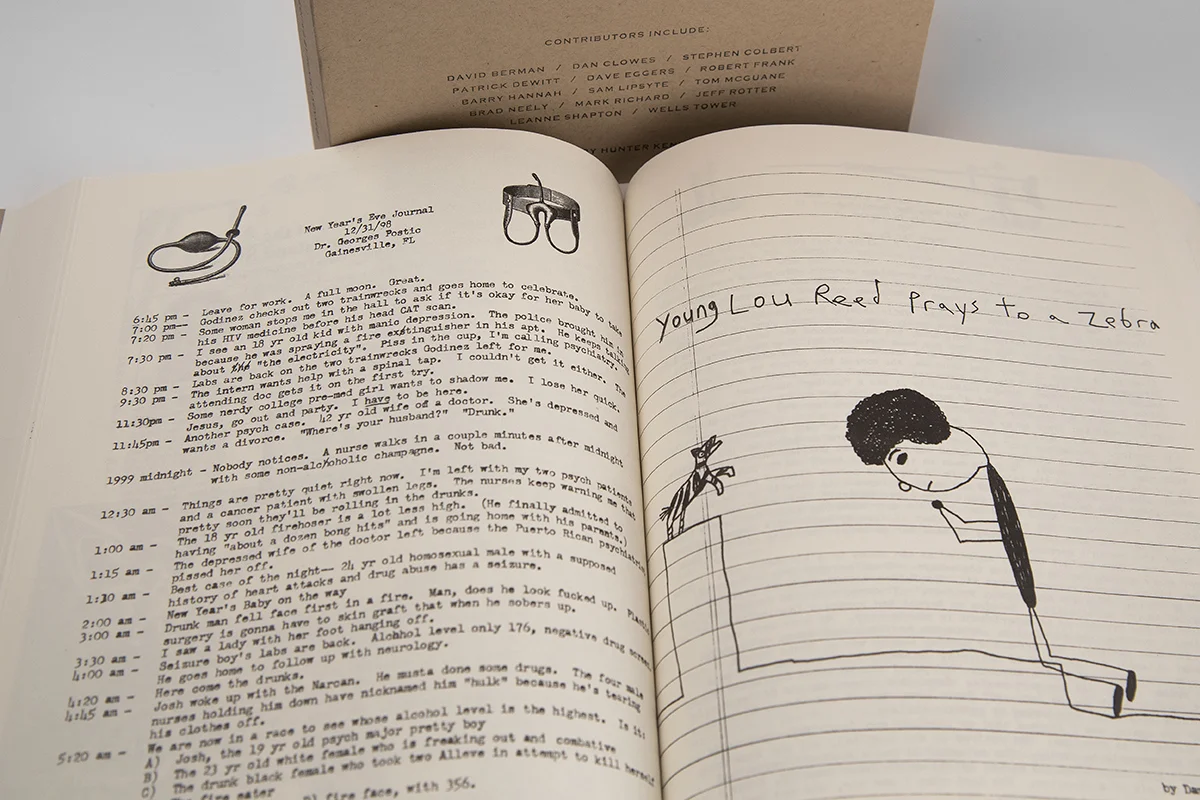 CONTRIBUTORS INCLUDE:
DAVID BERMAN / DAN CLOWES / STEPHEN COLBERT
PATRICK DEWITT / DAVE EGGERS / ROBERT FRANK
BARRY HANNAH / SAM LIPSYTE / TOM MCGUANE
BRAD NEELY / MARK RICHARD / JEFF ROTTER
LEANNE SHAPTON / WELLS TOWER
HUNTER
New Year's Eve Journal
12/31/98
Dr. Georges Postic
Gainesville, FL
6:45 pm - Leave for work. A full moon. Great.
7:00 pm-- Godinez checks out two trainwrecks and goes home to celebrate.
7:20 pm - Some woman stops me in the hall to ask if it's okay for her baby to take
his HIV medicine before his head CAT scan.
7:30 pm - I see an 18 yr old kid with manic depression. The police brought him in
because he was spraying a fire extinguisher in his apt. He keeps talking
about "the electricity". Piss in the cup, I'm calling psychiatry.
8:30 pm - Labs are back on the two trainwrecks Godinez left for me.
9:30 pm - The intern wants help with a spinal tap. I couldn't get it either. The
attending doc gets it on the first try.
11:30pm - Some nerdy college pre-med girl wants to shadow me. I lose her quick.
Jesus, go out and party. I have to be here.
11:45pm - Another psych case. 42 yr old wife of a doctor. She's depressed and
wants a divorce. "Where's your husband?" "Drunk."
1999 midnight - Nobody notices. A nurse walks in a couple minutes after midnight
with some non-alcoholic champagne. Not bad.
12:30 am - Things are pretty quiet right now. I'm left with my two psych patients
and a cancer patient with swollen legs. The nurses keep warning me that
pretty soon they'll be rolling in the drunks.
1:00 am - The 18 yr old firehoser is a lot less high. (He finally admitted to
having "about a dozen bong hits" and is going home with his parents.)
1:15 am - The depressed wife of the doctor left because the Puerto Rican psychiatrist
pissed her off.
1:30 am - Best case of the night-- 24 yr old homosexual male with a supposed
history of heart attacks and drug abuse has a seizure.
2:00 am - New Year's Baby on the way
3:00 am - Drunk man fell face first in a fire. Man, does he look fucked up. Plastic
surgery is gonna have to skin graft that when he sobers up.
3:30 am - I saw a lady with her foot hanging off.
4:00 am - Seizure boy's labs are back. Alcohol level only 176, negative drug screen.
He goes home to follow up with neurology.
4:20 am - Here come the drunks.
4:45 am - Josh woke up with the Narcan. He musta done some drugs. The four male
nurses holding him down have nicknamed him "hulk" because he's tearing
his clothes off.
5:20 am - We are now in a race to see whose alcohol level is the highest. Is it:
A) Josh, the 19 yr old psych major pretty boy
B) The 23 yr old white female who is freaking out and combative
C) The drunk black female who took two Alleve in attempt to kill herself
The fire eater D) fire face, with 356.
Young Lou Reed Prays to a Zebra
by